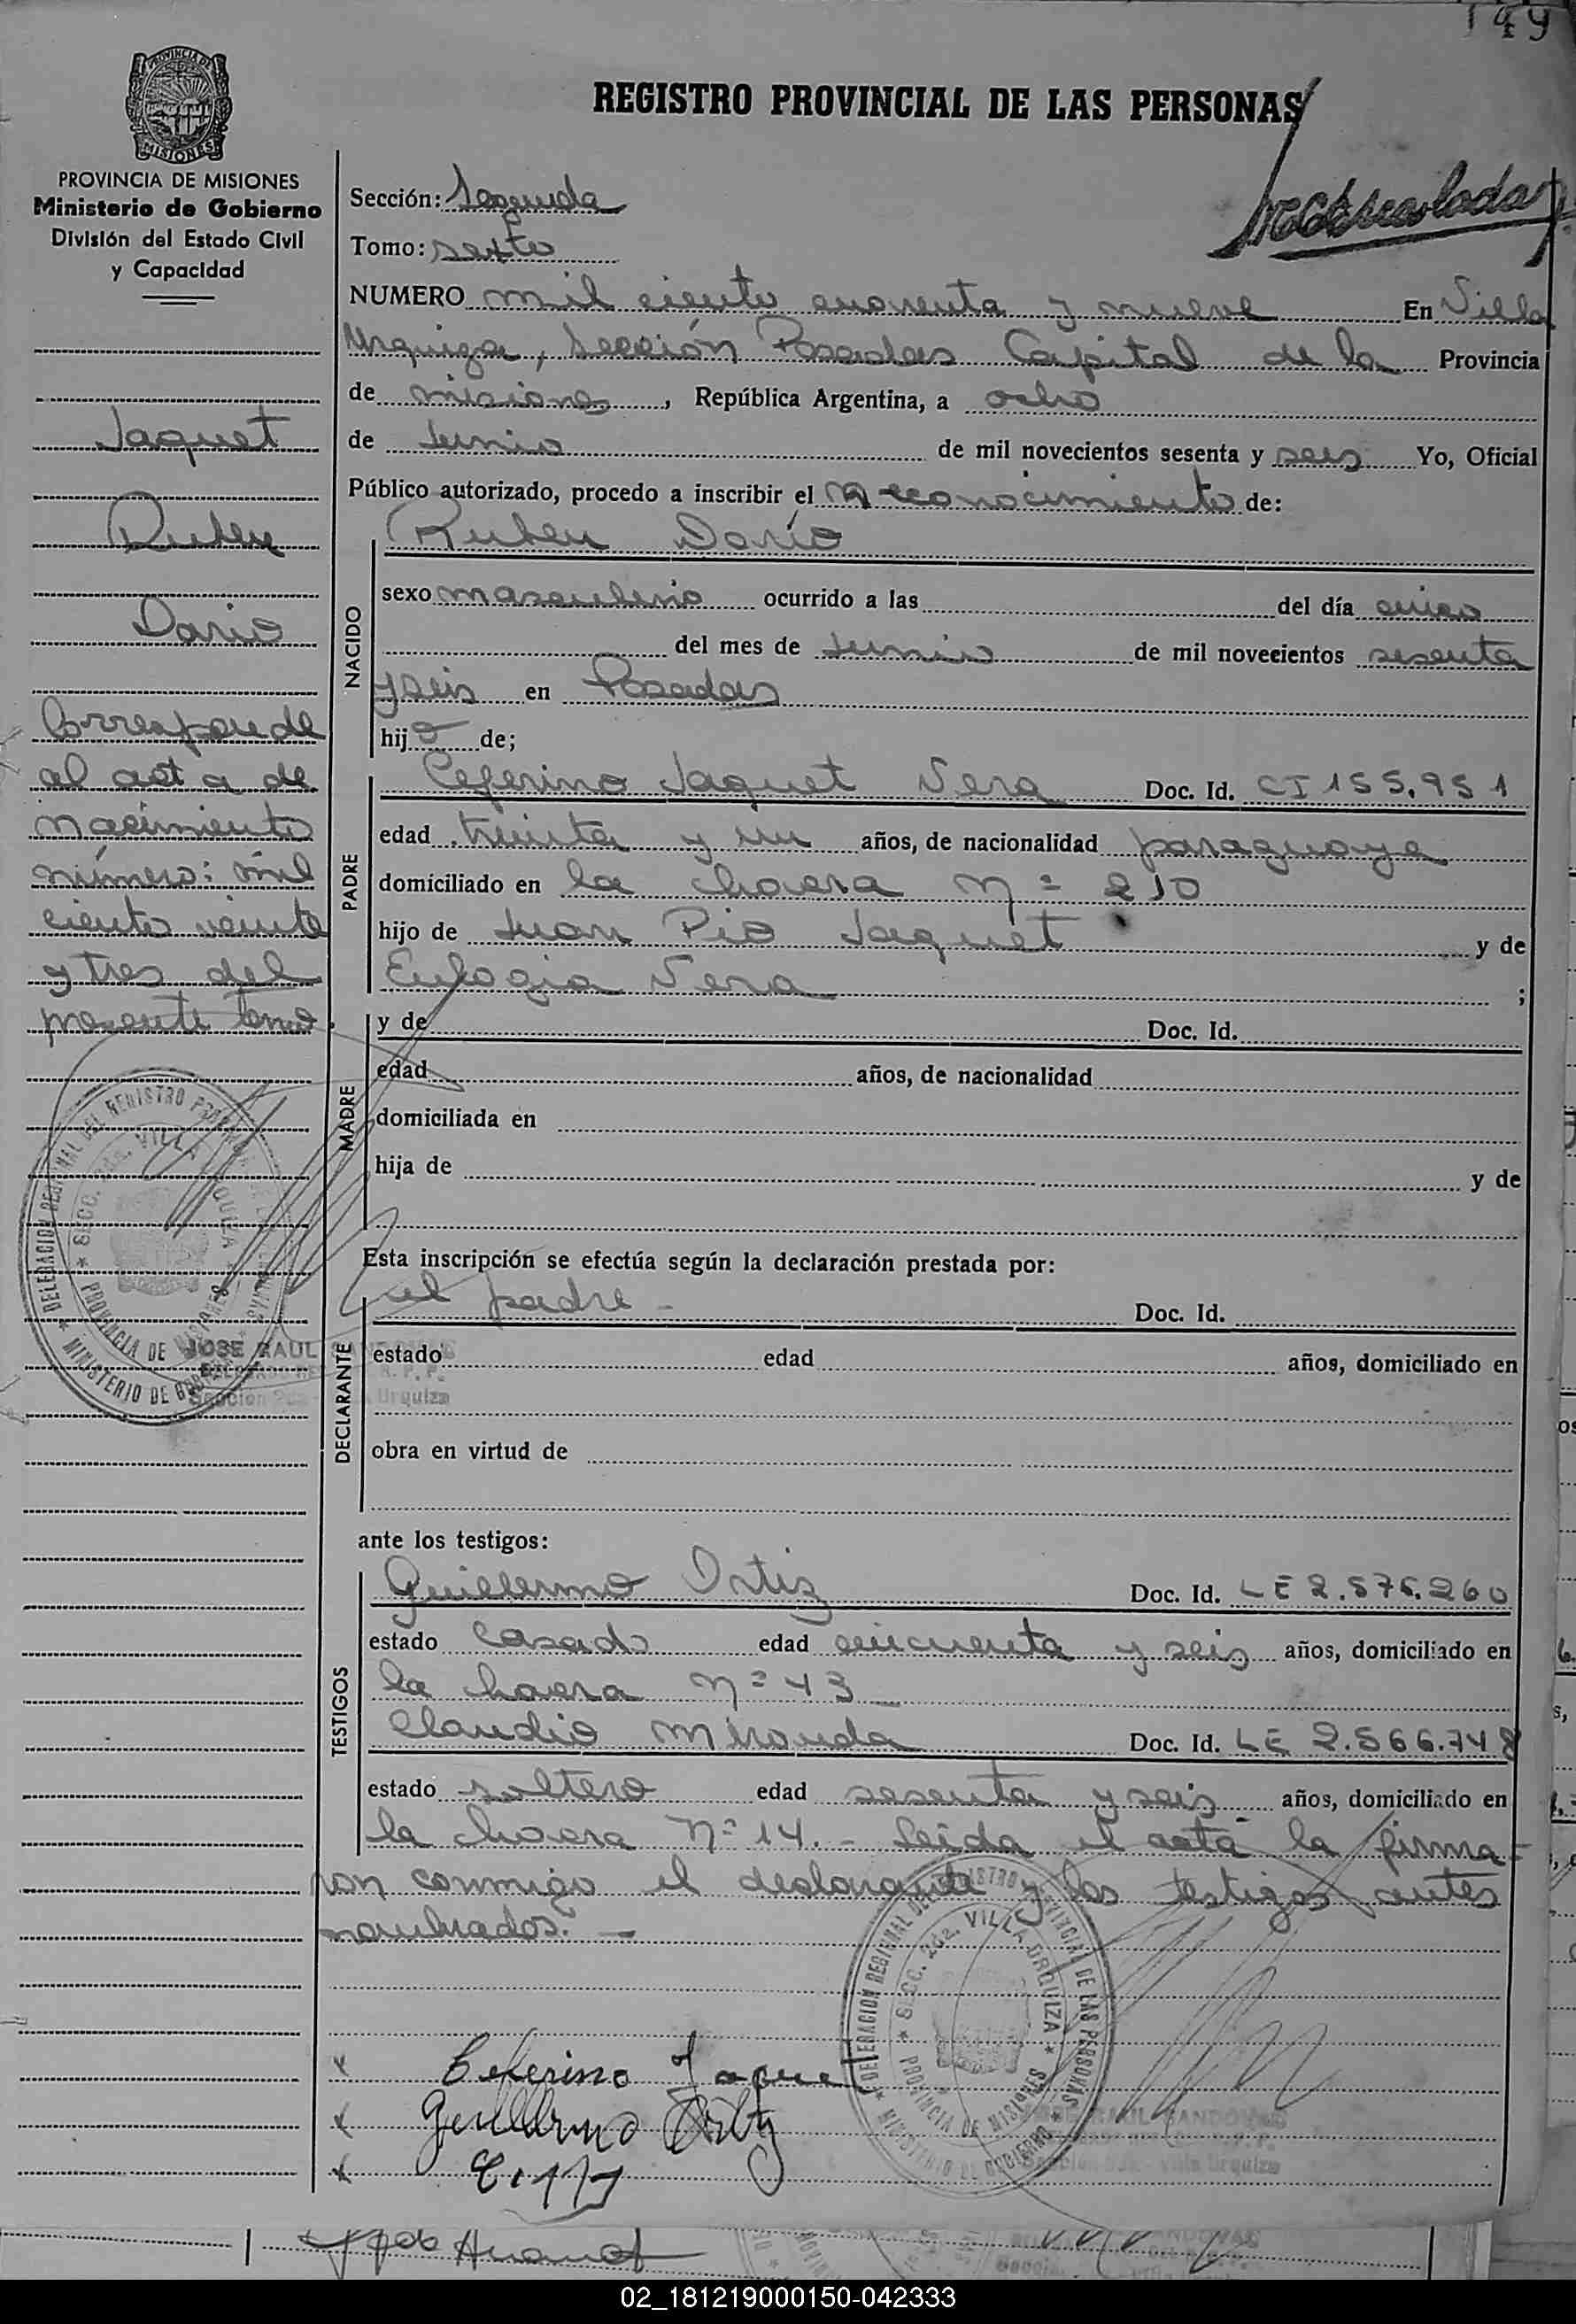 149
REGISTRO PROVINCIAL DE LAS PERSONAS
PROVINCIA DE MISIONES
Ministerio de Gobierno
División del Estado Civil
y Capacidad
Jaquet
Ruben
Dario
Corresponde
al acta de
nacimiento
número: mil
ciento veinte
y tres del
presente tomo.
Sección: Segunda
Tomo: sexto
NUMERO mil ciento cuarenta y nueve En Villa
Urquiza, Sección Posadas Capital de la Provincia
de misiones, República Argentina, a ocho
de Junio de mil novecientos sesenta y seis Yo, Oficial
Público autorizado, procedo a inscribir el Reconocimiento de:
NACIDO
Ruben Darío
sexo masculino ocurrido a las del día cinco
del mes de Junio de mil novecientos sesenta
y seis en Posadas
hijo de;
PADRE
Ceferino Jaquet Vera Doc. Id. CI 155.951
edad treinta y un años, de nacionalidad paraguaya
domiciliado en la chacra nº 210
hijo de Juan Pio Jaquet y de
Eulogia Vera ;
MADRE
y de Doc. Id.
edad años, de nacionalidad
domiciliada en
hija de y de
Esta inscripción se efectúa según la declaración prestada por:
DECLARANTE
el padre - Doc. Id.
estado edad años, domiciliado en
obra en virtud de
ante los testigos:
TESTIGOS
Guillermo Ortiz Doc. Id. LE 2.575.260
estado casado edad cincuenta y seis años, domiciliado en
la chacra nº 43
Claudio Miranda Doc. Id. LE 2.566.748
estado soltero edad sesenta y seis años, domiciliado en
la chacra nº 14. - Leida el acta la firma-
ron conmigo el declarante y los testigos antes
nombrados. -
Ceferino Jaquet
Guillermo Ortiz
DELEGACION REGIONAL DEL REGISTRO PROVINCIAL DE LAS PERSONAS
SECC. 2da. VILLA URQUIZA
PROVINCIA DE MISIONES
MINISTERIO DE GOBIERNO
JOSE RAUL SANDOVAL
Sección 2da. - Villa Urquiza
02_181219000150-042333